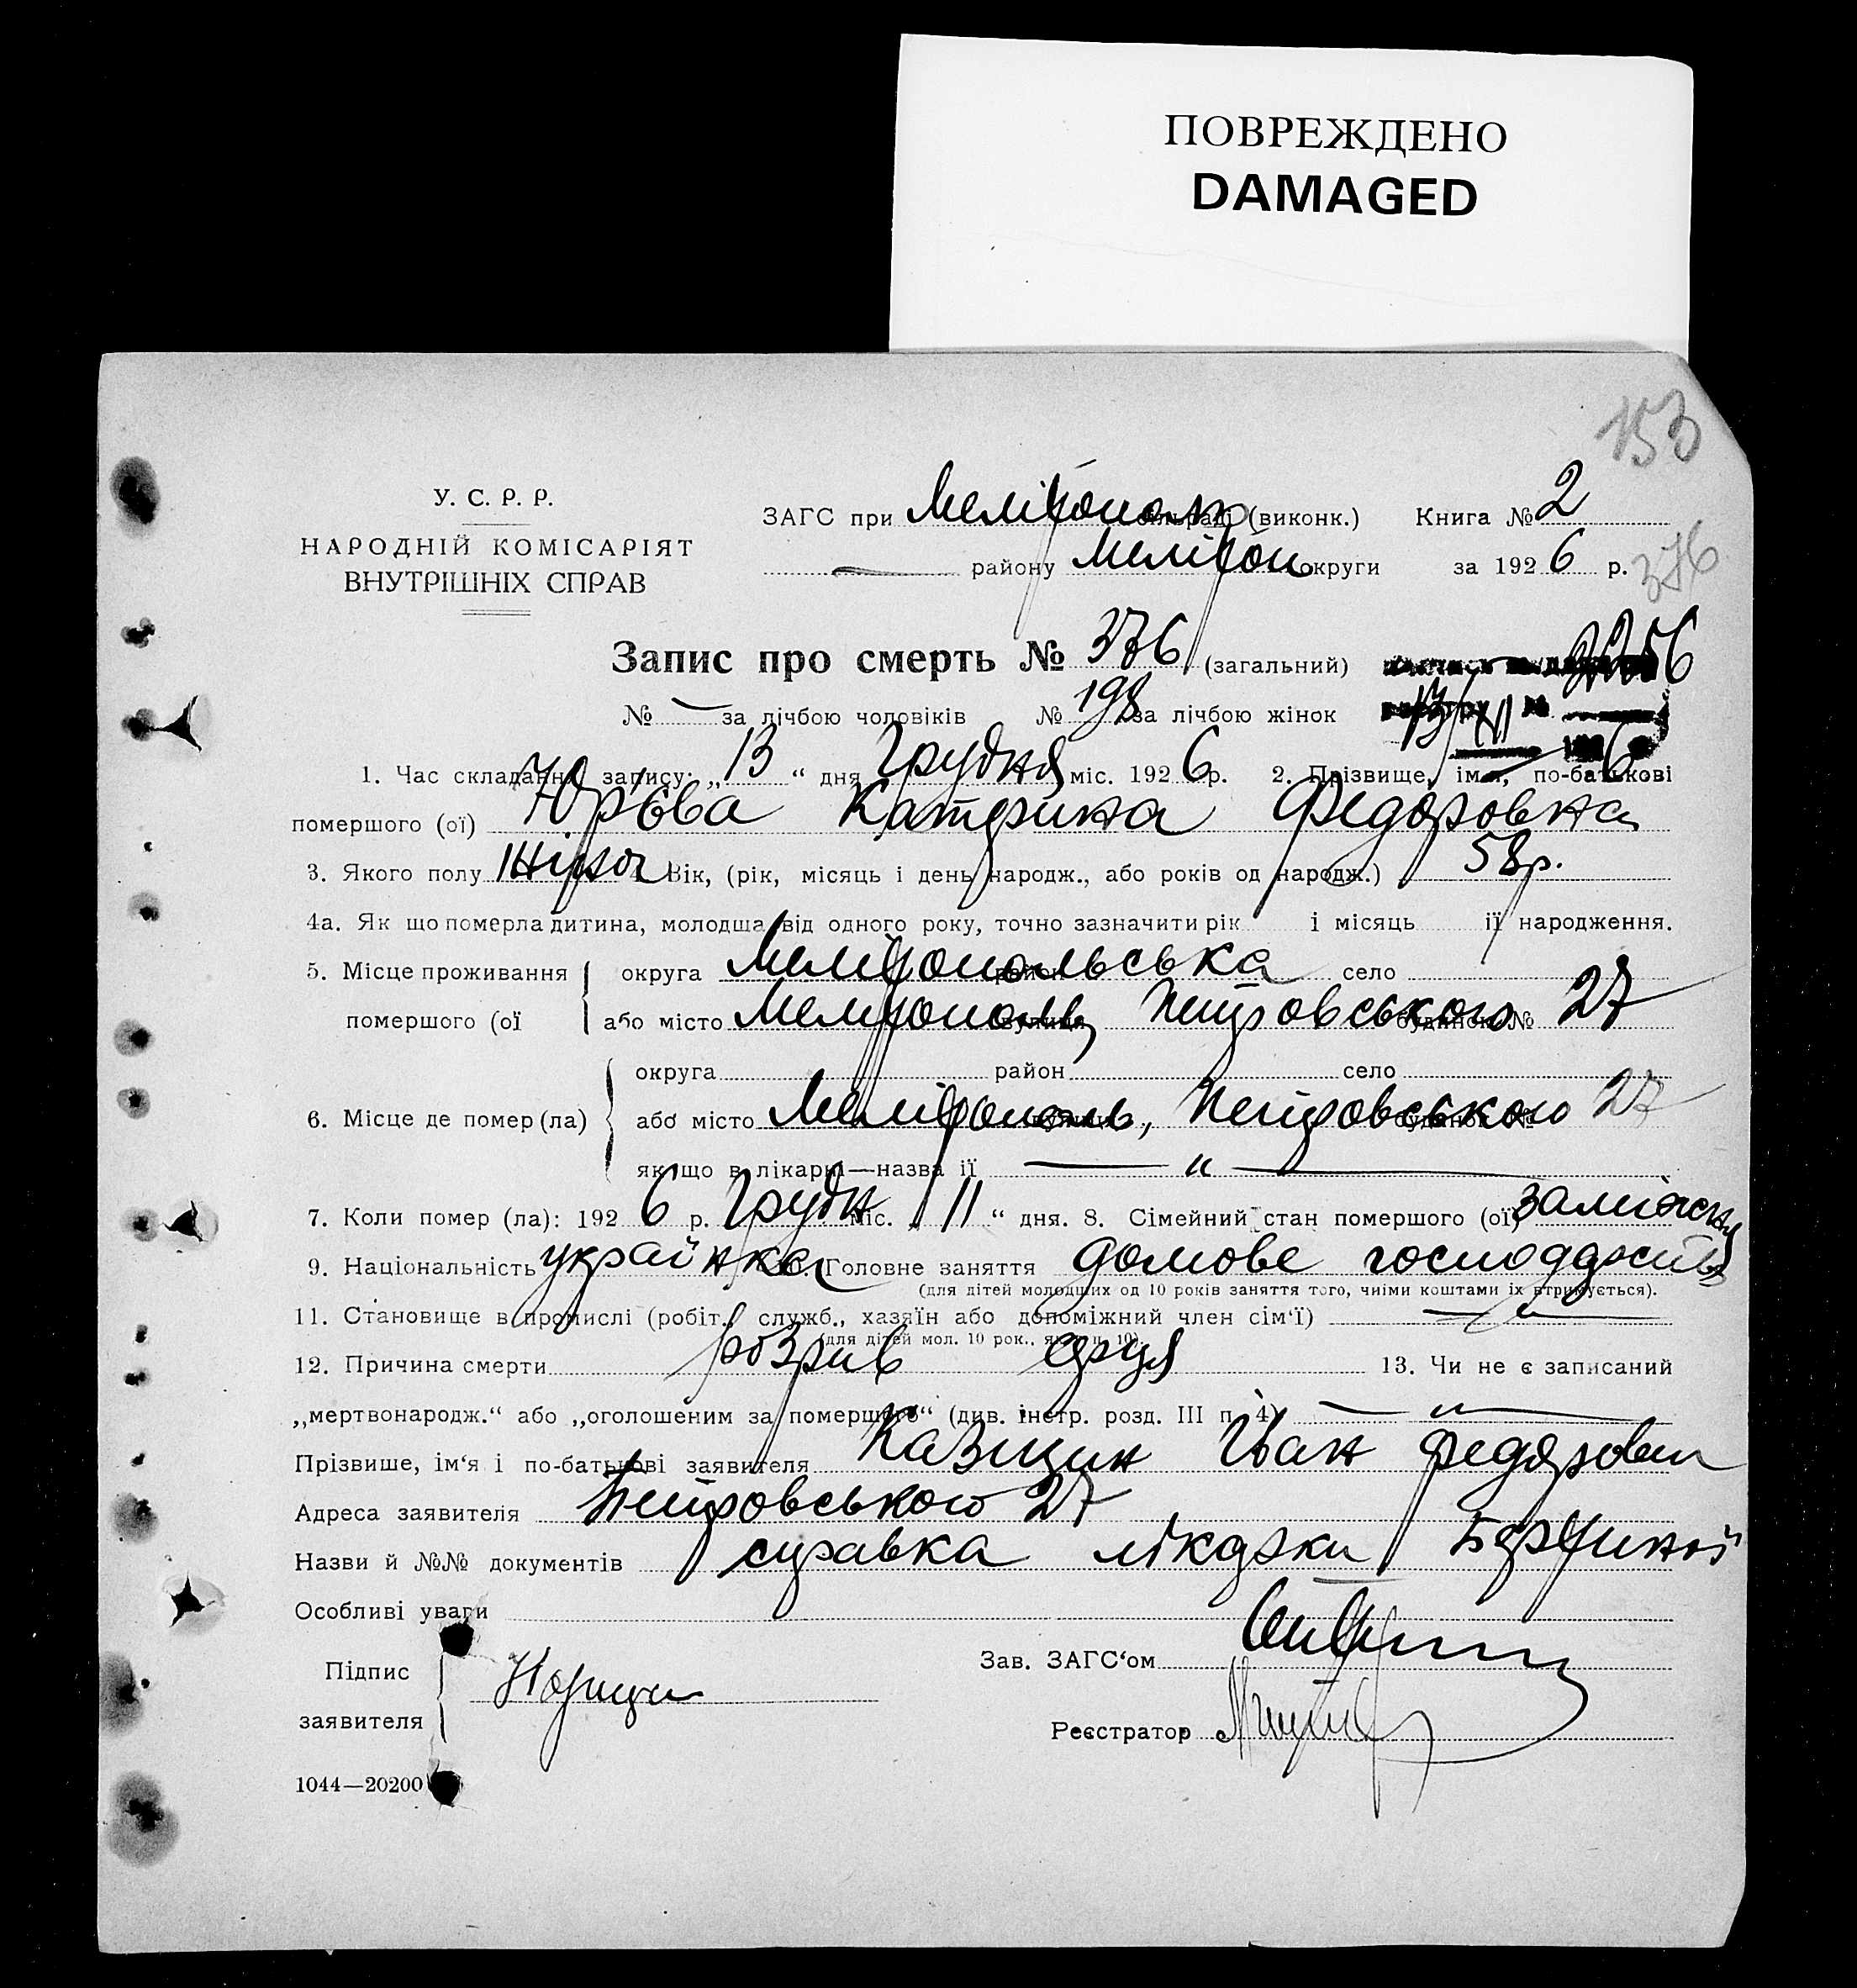 ПОВРЕЖДЕНО
DAMAGED
153
У. С. Р. Р.
НАРОДНІЙ КОМІСАРІЯТ
ВНУТРІШНІХ СПРАВ
ЗАГС при Мелітополь (виконк.) Книга № 2
— району Мелітоп округи за 1926 р. 376
Запис про смерть № 376 (загальний)
№ — за лічбою чоловіків № 198 за лічбою жінок 13/XII
1. Час складання запису: „13“ дня Грудня міс. 1926 р. 2. Прізвище, ім'я, по-батькові
помершого (ої) Юр'єва Катерина Федоровна
3. Якого полу Жіноч 4. Вік, (рік, місяць і день народж., або років од народж.) 58 р.
4а. Як що померла дитина, молодша від одного року, точно зазначити рік і місяць її народження.
5. Місце проживання округа Мелітопольська район село
помершого (ої або місто Мелітополь, вулиця Петровського будинок № 27
округа район село
6. Місце де помер (ла) або місто Мелітополь, вулиця Петровського будинок № 27
як що в лікарні—назва її — „ —
7. Коли помер (ла): 1926 р. Грудн міс. „11“ дня. 8. Сімейний стан помершого (ої) заміжня
9. Національність українка 10. Головне заняття домове господарство
(для дітей молодших од 10 років заняття того, чиїми коштами їх втримується).
11. Становище в промислі (робіт., служб., хазяїн або допоміжний член сім'ї) — „ —
(для дітей мол. 10 рок., як в п. 10).
12. Причина смерти розрив серця 13. Чи не є записаний
„мертвонародж.“ або „оголошеним за помершого“ (див. інстр. розд. III п. 4) — „ —
Прізвище, ім'я і по-батькові заявителя Іван Федорович
Адреса заявителя Петровського 27
Назви й №№ документів справка лікарки
Особливі уваги
Підпис
заявителя
Зав. ЗАГС'ом
Реєстратор
1044—20200